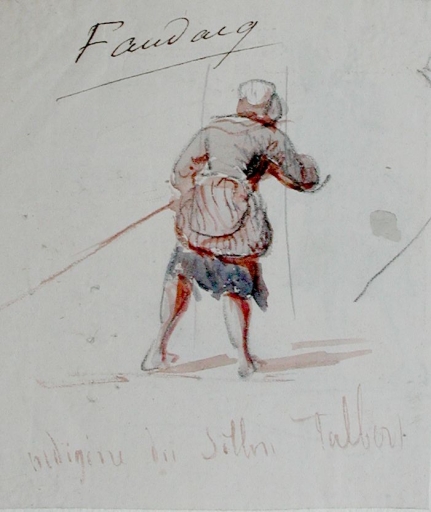 Faudacq
indigène du Sillon Talbert